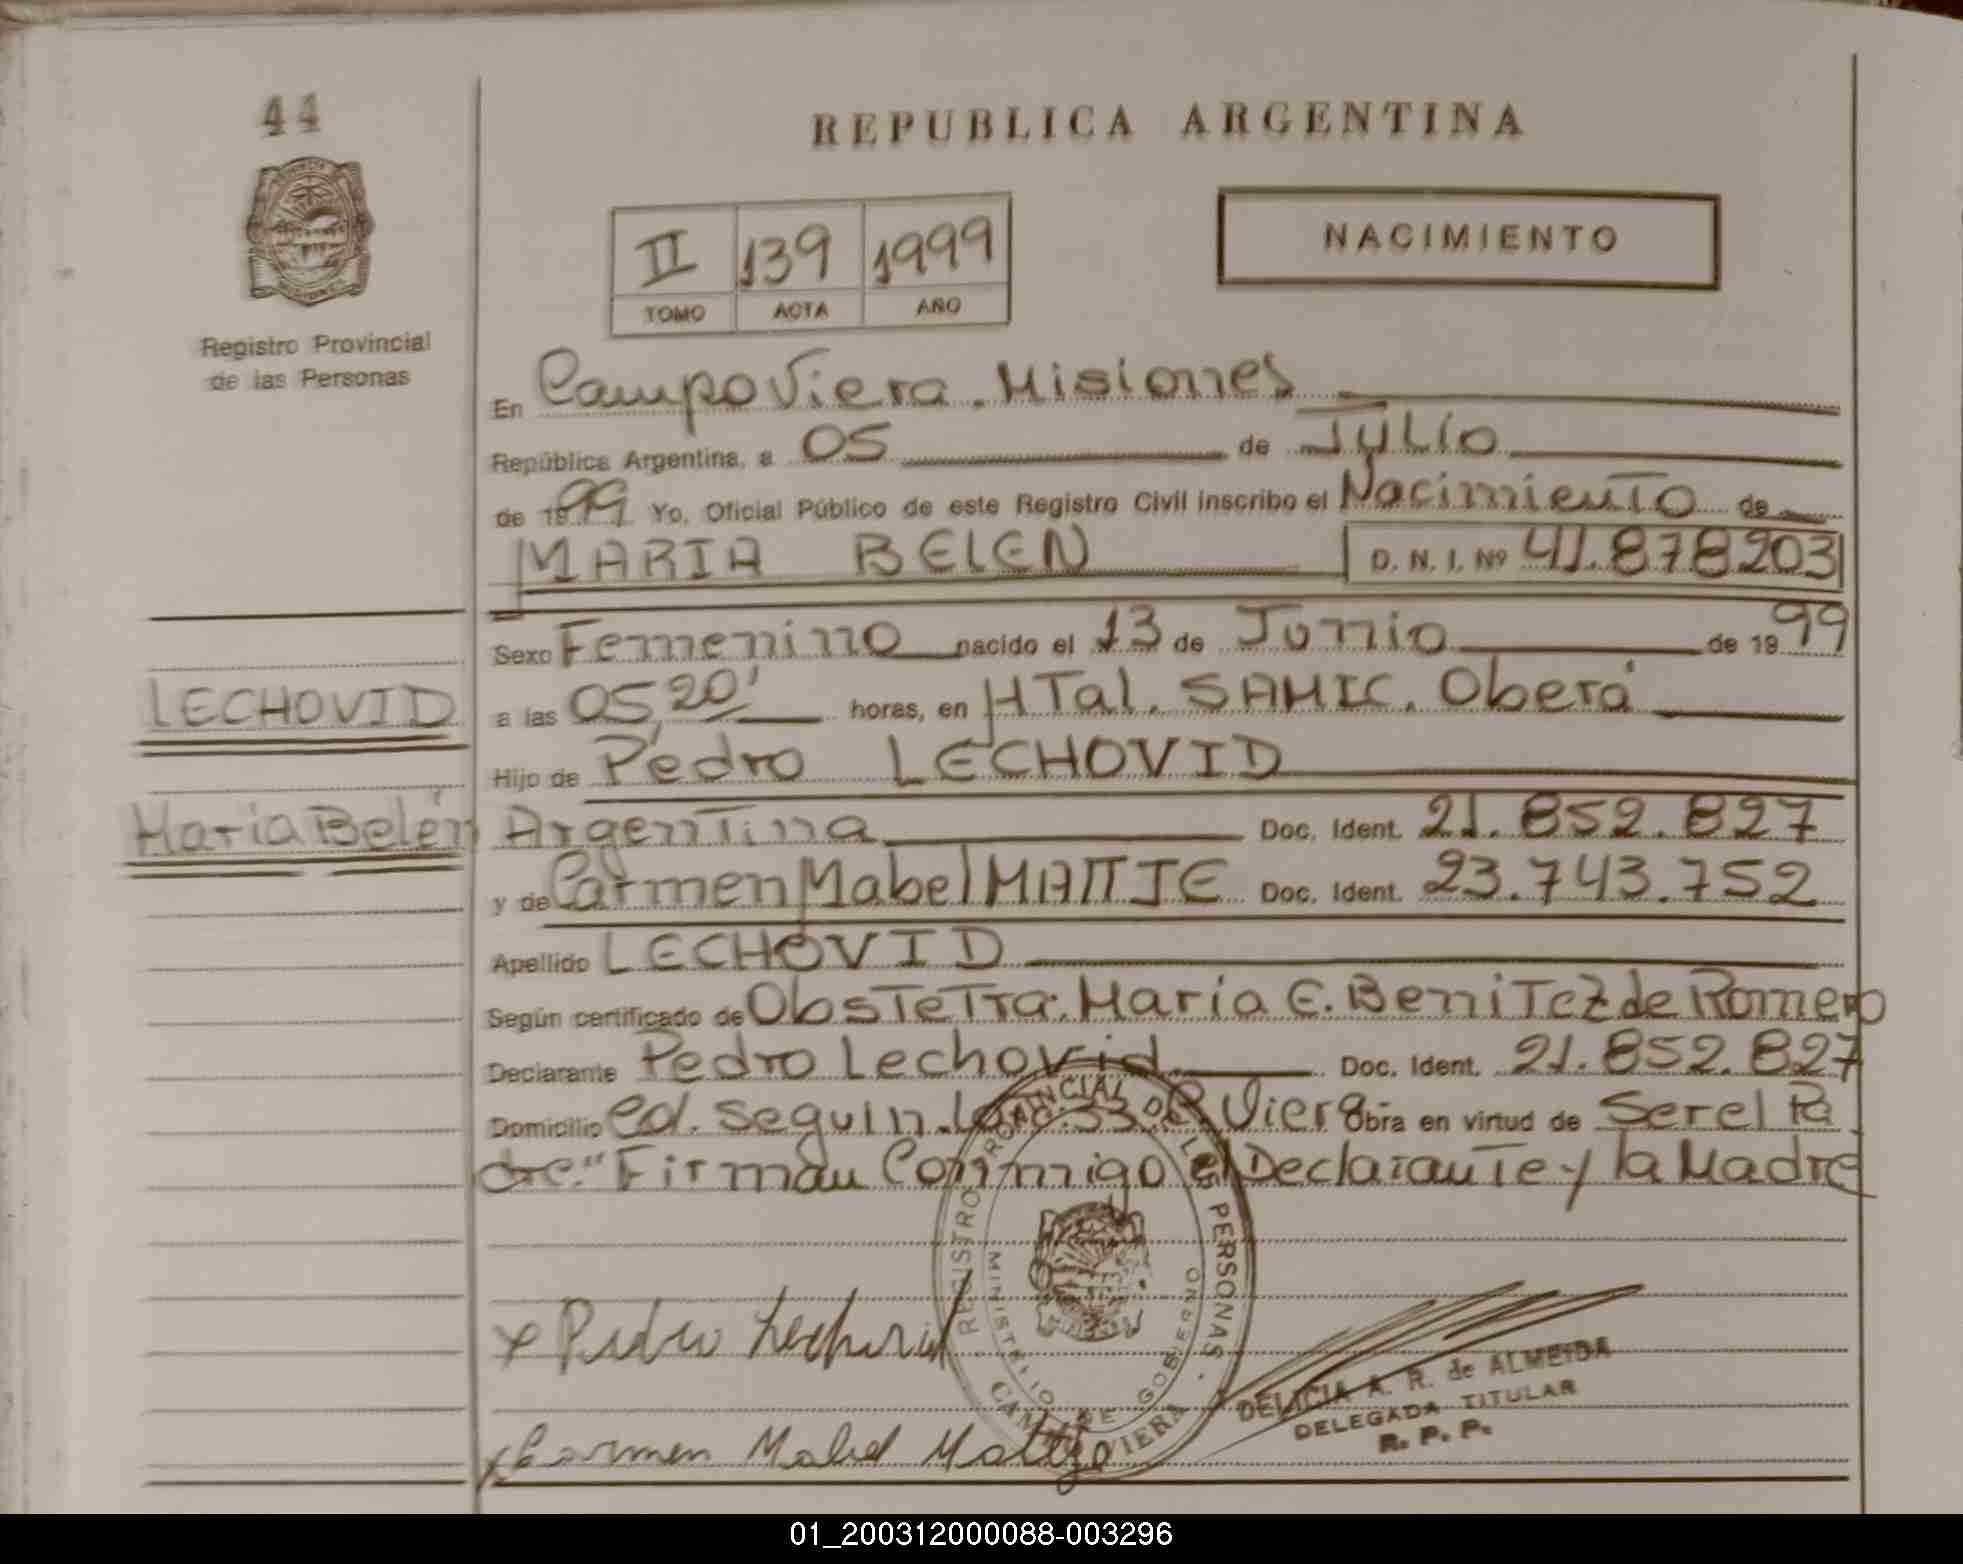 44
REPUBLICA ARGENTINA
II 139 1999
TOMO ACTA AÑO
NACIMIENTO
Registro Provincial
de las Personas
En Campo Viera. Misiones
República Argentina, a 05 de Julio
de 1999 Yo, Oficial Público de este Registro Civil inscribo el Nacimiento de
MARIA BELEN D. N. I. Nº 41.878203
Sexo Femenino nacido el 13 de Junio de 1999
LECHOVID
a las 05,20' horas, en HTal. SAMIC. Oberá
Hijo de Pedro LECHOVID
María Belén
Argentina Doc. Ident. 21.852.827
y de Carmen Mabel MATTJE Doc. Ident. 23.743.752
Apellido LECHOVID
Según certificado de Obstetra: María E. Benitez de Romero
Declarante Pedro Lechovid Doc. Ident. 21.852.827
Domicilio ed. Seguin. Viera Obra en virtud de Ser el Pa
dre." Firman Conmigo el Declarante y la Madre
REGISTRO PROVINCIAL DE LAS PERSONAS
MINISTERIO DE GOBIERNO
CAMPO VIERA
x Pedro Lechovid
DELICIA A. R. de ALMEIDA
DELEGADA TITULAR
R. P. P.
x Carmen Mabel Mattje
01_200312000088-003296